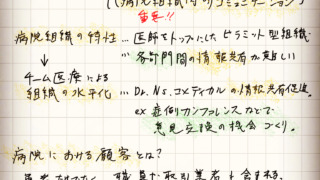 (病院組織内のコミュニケーション)
重要!!
病院組織の特性 … 医師をトップにしたピラミッド型組織.
各部門間の情報共有が難しい
↓
チーム医療による
組織の水平化 … Dr. Ns. コメディカルの情報共有促進.
ex 症例カンファレンスなどで
意見交換の機会づくり。
病院における顧客とは?
患者だけでなく、職員や取引業者も含まれる.